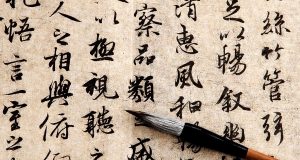 絲竹管弦
足以暢叙幽
清惠風和暢
察品類盛
以極視聽之
人之相與俯仰
抱悟言一室之